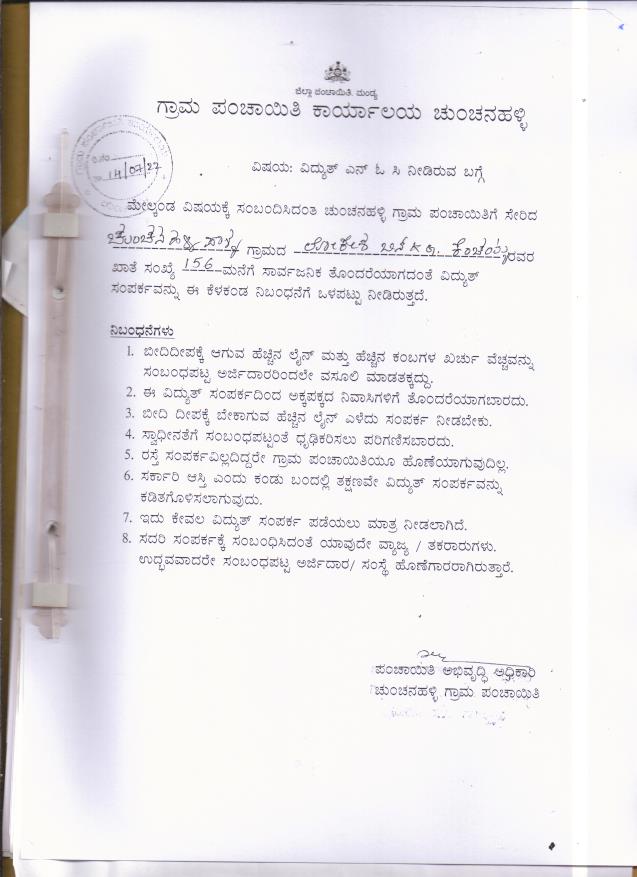 ಜಿಲ್ಲಾ ಪಂಚಾಯಿತಿ, ಮಂಡ್ಯ
ಗ್ರಾಮ ಪಂಚಾಯಿತಿ ಕಾರ್ಯಾಲಯ ಚುಂಚನಹಳ್ಳಿ
14/07/27
ವಿಷಯ: ವಿದ್ಯುತ್ ಎನ್ ಓ ಸಿ ನೀಡಿರುವ ಬಗ್ಗೆ
ಮೇಲ್ಕಂಡ ವಿಷಯಕ್ಕೆ ಸಂಬಂದಿಸಿದಂತೆ ಚುಂಚನಹಳ್ಳಿ ಗ್ರಾಮ ಪಂಚಾಯಿತಿಗೆ ಸೇರಿದ
ಗ್ರಾಮದ ಲೋಕೇಶ ರವರ
ಖಾತೆ ಸಂಖ್ಯೆ 156 ಮನೆಗೆ ಸಾರ್ವಜನಿಕ ತೊಂದರೆಯಾಗದಂತೆ ವಿದ್ಯುತ್
ಸಂಪರ್ಕವನ್ನು ಈ ಕೆಳಕಂಡ ನಿಬಂಧನೆಗೆ ಒಳಪಟ್ಟು ನೀಡಿರುತ್ತದೆ.
ನಿಬಂಧನೆಗಳು
1. ಬೀದಿದೀಪಕ್ಕೆ ಆಗುವ ಹೆಚ್ಚಿನ ಲೈನ್ ಮತ್ತು ಹೆಚ್ಚಿನ ಕಂಬಗಳ ಖರ್ಚು ವೆಚ್ಚವನ್ನು
ಸಂಬಂಧಪಟ್ಟ ಅರ್ಜಿದಾರರಿಂದಲೇ ವಸೂಲಿ ಮಾಡತಕ್ಕದ್ದು.
2. ಈ ವಿದ್ಯುತ್ ಸಂಪರ್ಕದಿಂದ ಅಕ್ಕಪಕ್ಕದ ನಿವಾಸಿಗಳಿಗೆ ತೊಂದರೆಯಾಗಬಾರದು.
3. ಬೀದಿ ದೀಪಕ್ಕೆ ಬೇಕಾಗುವ ಹೆಚ್ಚಿನ ಲೈನ್ ಎಳೆದು ಸಂಪರ್ಕ ನೀಡಬೇಕು.
4. ಸ್ವಾಧೀನತೆಗೆ ಸಂಬಂಧಪಟ್ಟಂತೆ ಧೃಢಿಕರಿಸಲು ಪರಿಗಣಿಸಬಾರದು.
5. ರಸ್ತೆ ಸಂಪರ್ಕವಿಲ್ಲದಿದ್ದರೇ ಗ್ರಾಮ ಪಂಚಾಯಿತಿಯೂ ಹೊಣೆಯಾಗುವುದಿಲ್ಲ.
6. ಸರ್ಕಾರಿ ಆಸ್ತಿ ಎಂದು ಕಂಡು ಬಂದಲ್ಲಿ ತಕ್ಷಣವೇ ವಿದ್ಯುತ್ ಸಂಪರ್ಕವನ್ನು
ಕಡಿತಗೊಳಿಸಲಾಗುವುದು.
7. ಇದು ಕೇವಲ ವಿದ್ಯುತ್ ಸಂಪರ್ಕ ಪಡೆಯಲು ಮಾತ್ರ ನೀಡಲಾಗಿದೆ.
8. ಸದರಿ ಸಂಪರ್ಕಕ್ಕೆ ಸಂಬಂಧಿಸಿದಂತೆ ಯಾವುದೇ ವ್ಯಾಜ್ಯ / ತಕರಾರುಗಳು.
ಉದ್ಭವವಾದರೇ ಸಂಬಂಧಪಟ್ಟ ಅರ್ಜಿದಾರ/ ಸಂಸ್ಥೆ ಹೊಣೆಗಾರರಾಗಿರುತ್ತಾರೆ.
ಪಂಚಾಯಿತಿ ಅಭಿವೃದ್ಧಿ ಅಧಿಕಾರಿ
ಚುಂಚನಹಳ್ಳಿ ಗ್ರಾಮ ಪಂಚಾಯಿತಿ